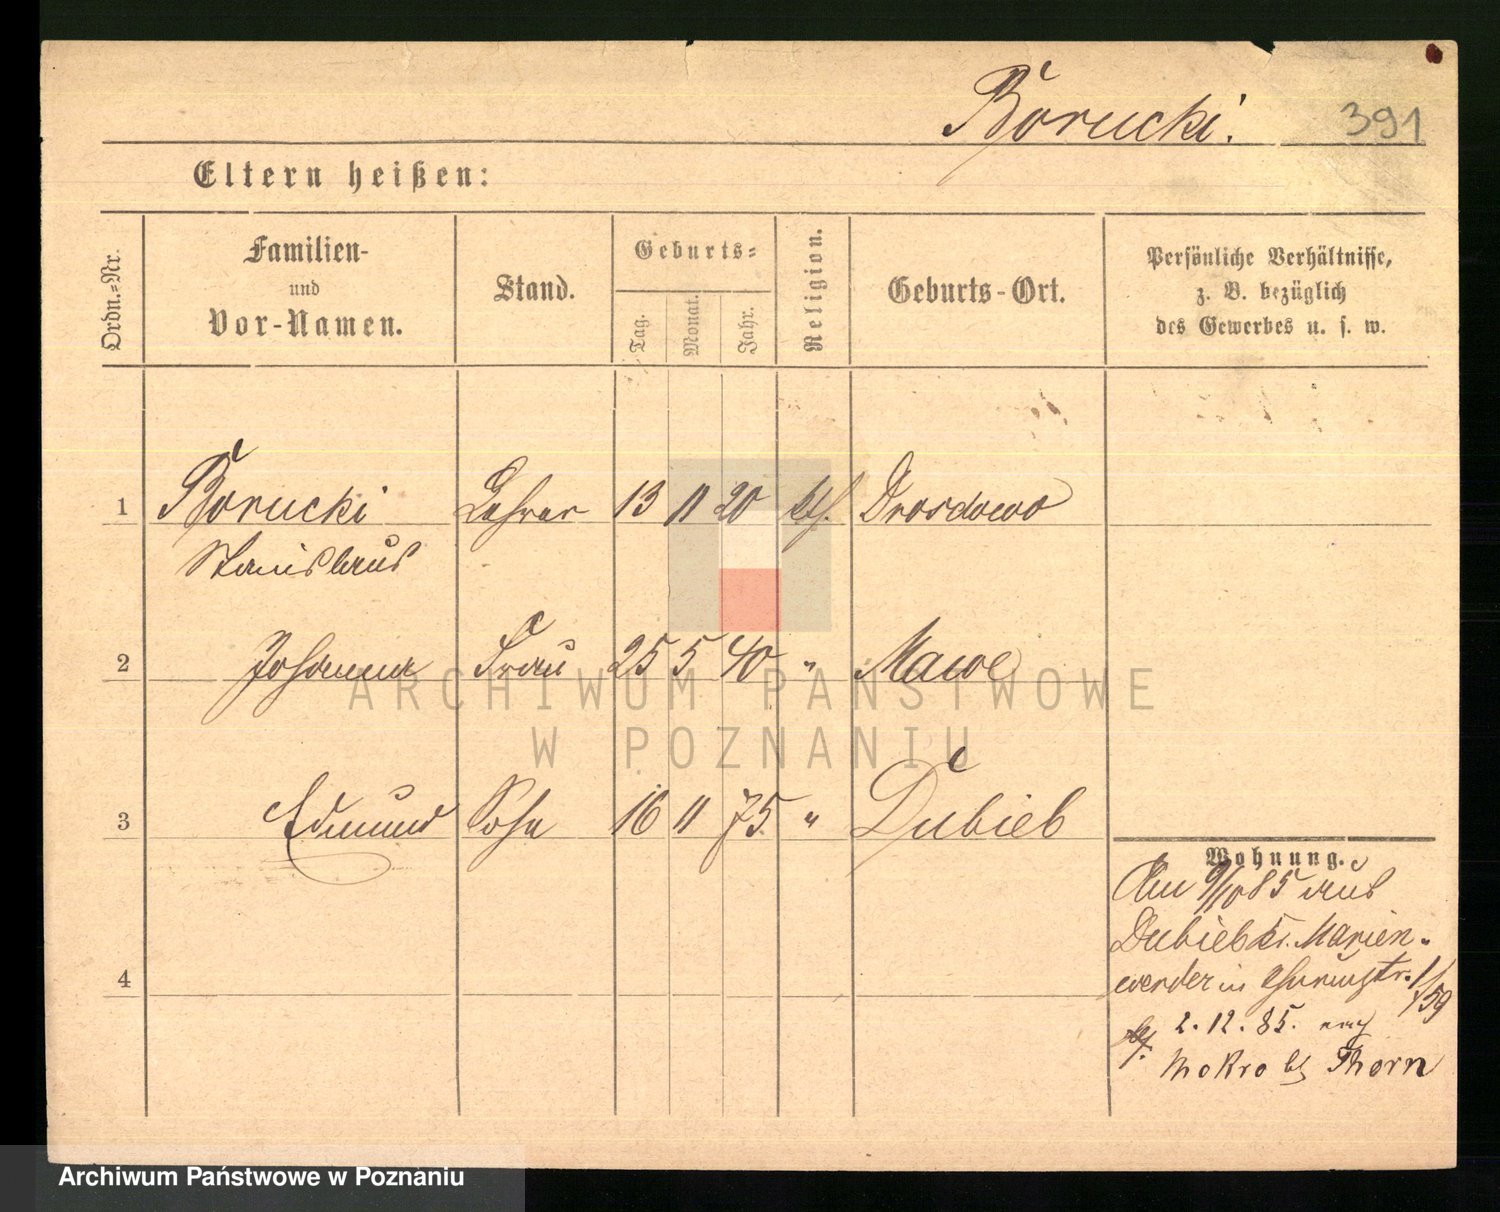 Borucki.
391
Eltern heißen:
Ordn.=Nr.
Familien-
und
Vor-Namen.
Stand.
Geburts=
Tag.
Monat.
Jahr.
Religion.
Geburts-Ort.
Persönliche Verhältnisse,
z. B. bezüglich
des Gewerbes u. s. w.
1 Borucki Lehrer 13 11 20 kth. Drosdowo
Stanislaus
2 Johanna Frau 25 5 40 " Mawe
ARCHIWUM PAŃSTWOWE
W POZNANIU
3 Edmund Sohn 16 11 75. " Dubieb
Wohnung.
Am 9/10 85 aus
Dubieb Kr. Marien-
werder in Thurmstr. 1/59
2. 12. 85.
Mokro Thorn
4
Archiwum Państwowe w Poznaniu